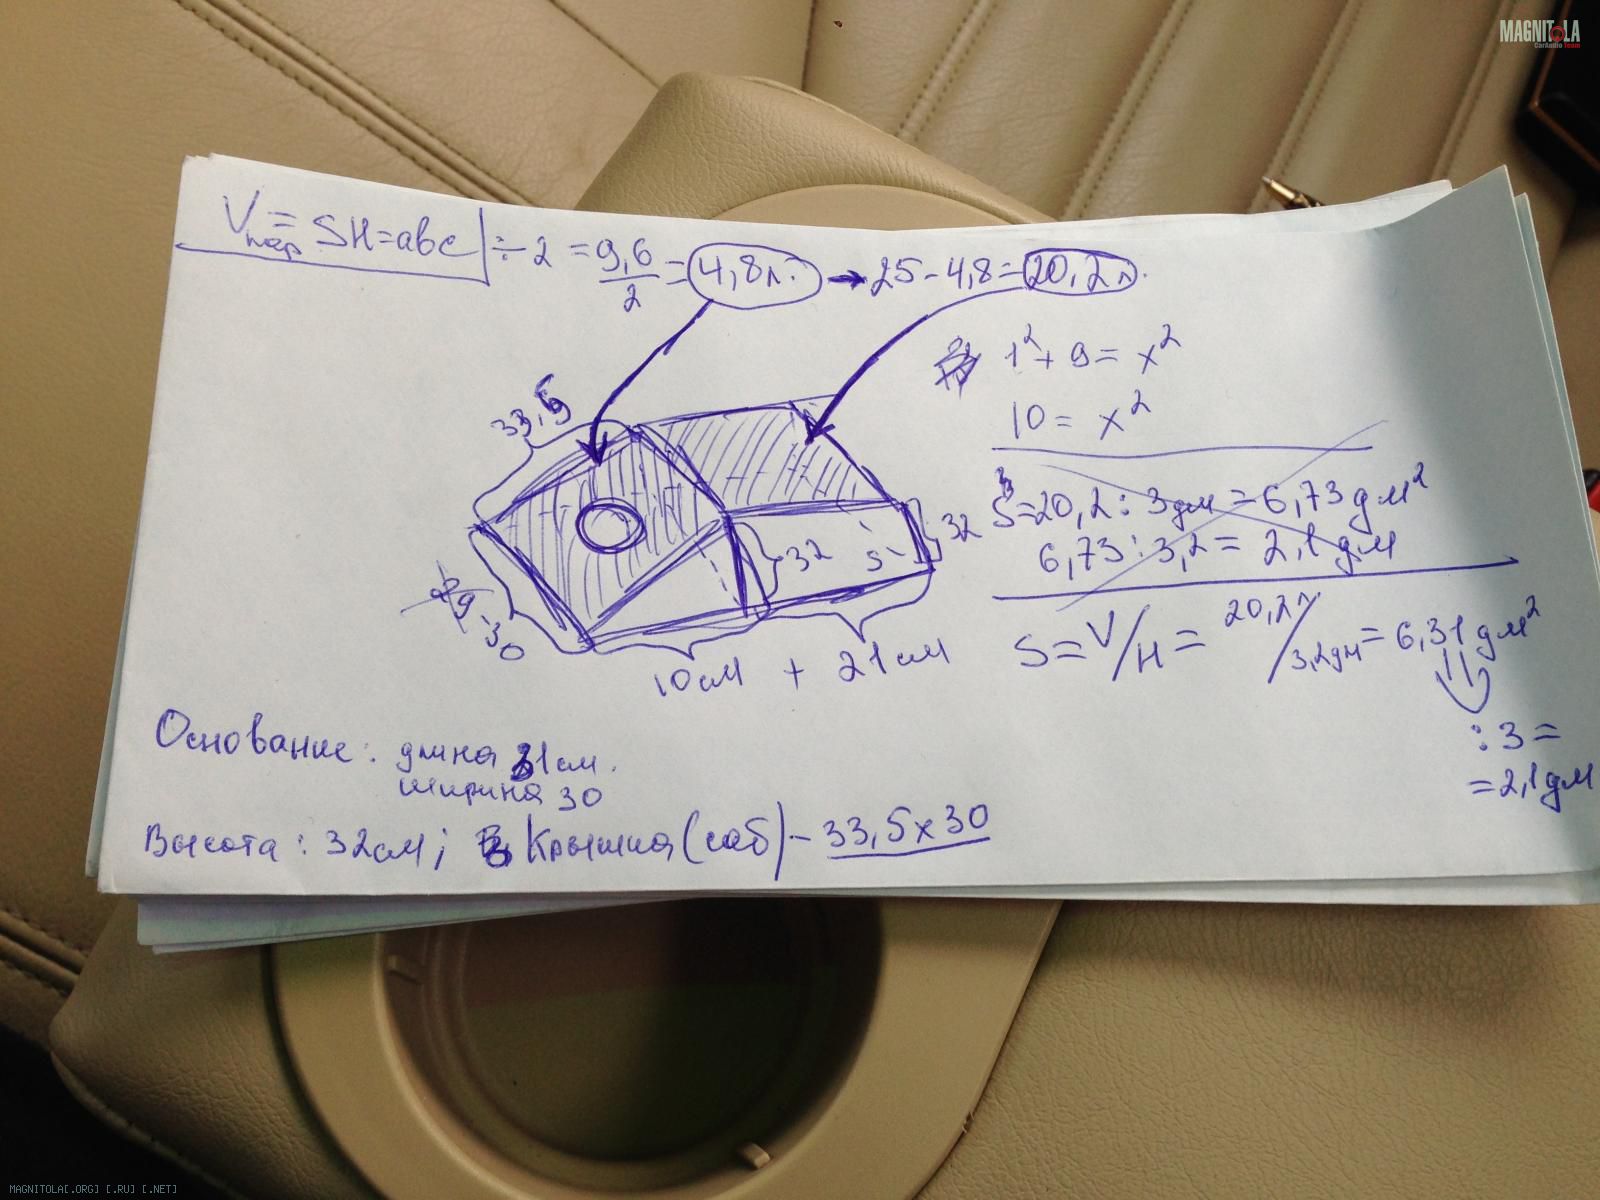 MAGNITOLA
CarAudio Team
Vпар = SH=abc ÷ 2 = 9,6/2 = 4,8л. → 25 - 4,8 = 20,2л.
1² + 9 = x²
10 = x²
33,5
S=20,2 : 3дм = 6,73дм²
6,73 : 3,2 = 2,1дм
32
32
S
30
S=V/H = 20,2л/3,2дм = 6,31дм²
: 3 =
= 2,1дм
10см + 21см
Основание: длина 31см.
ширина 30
Высота: 32см; Крышка (саб) - 33,5x30
MAGNITOLA[.ORG] [.RU] [.NET]